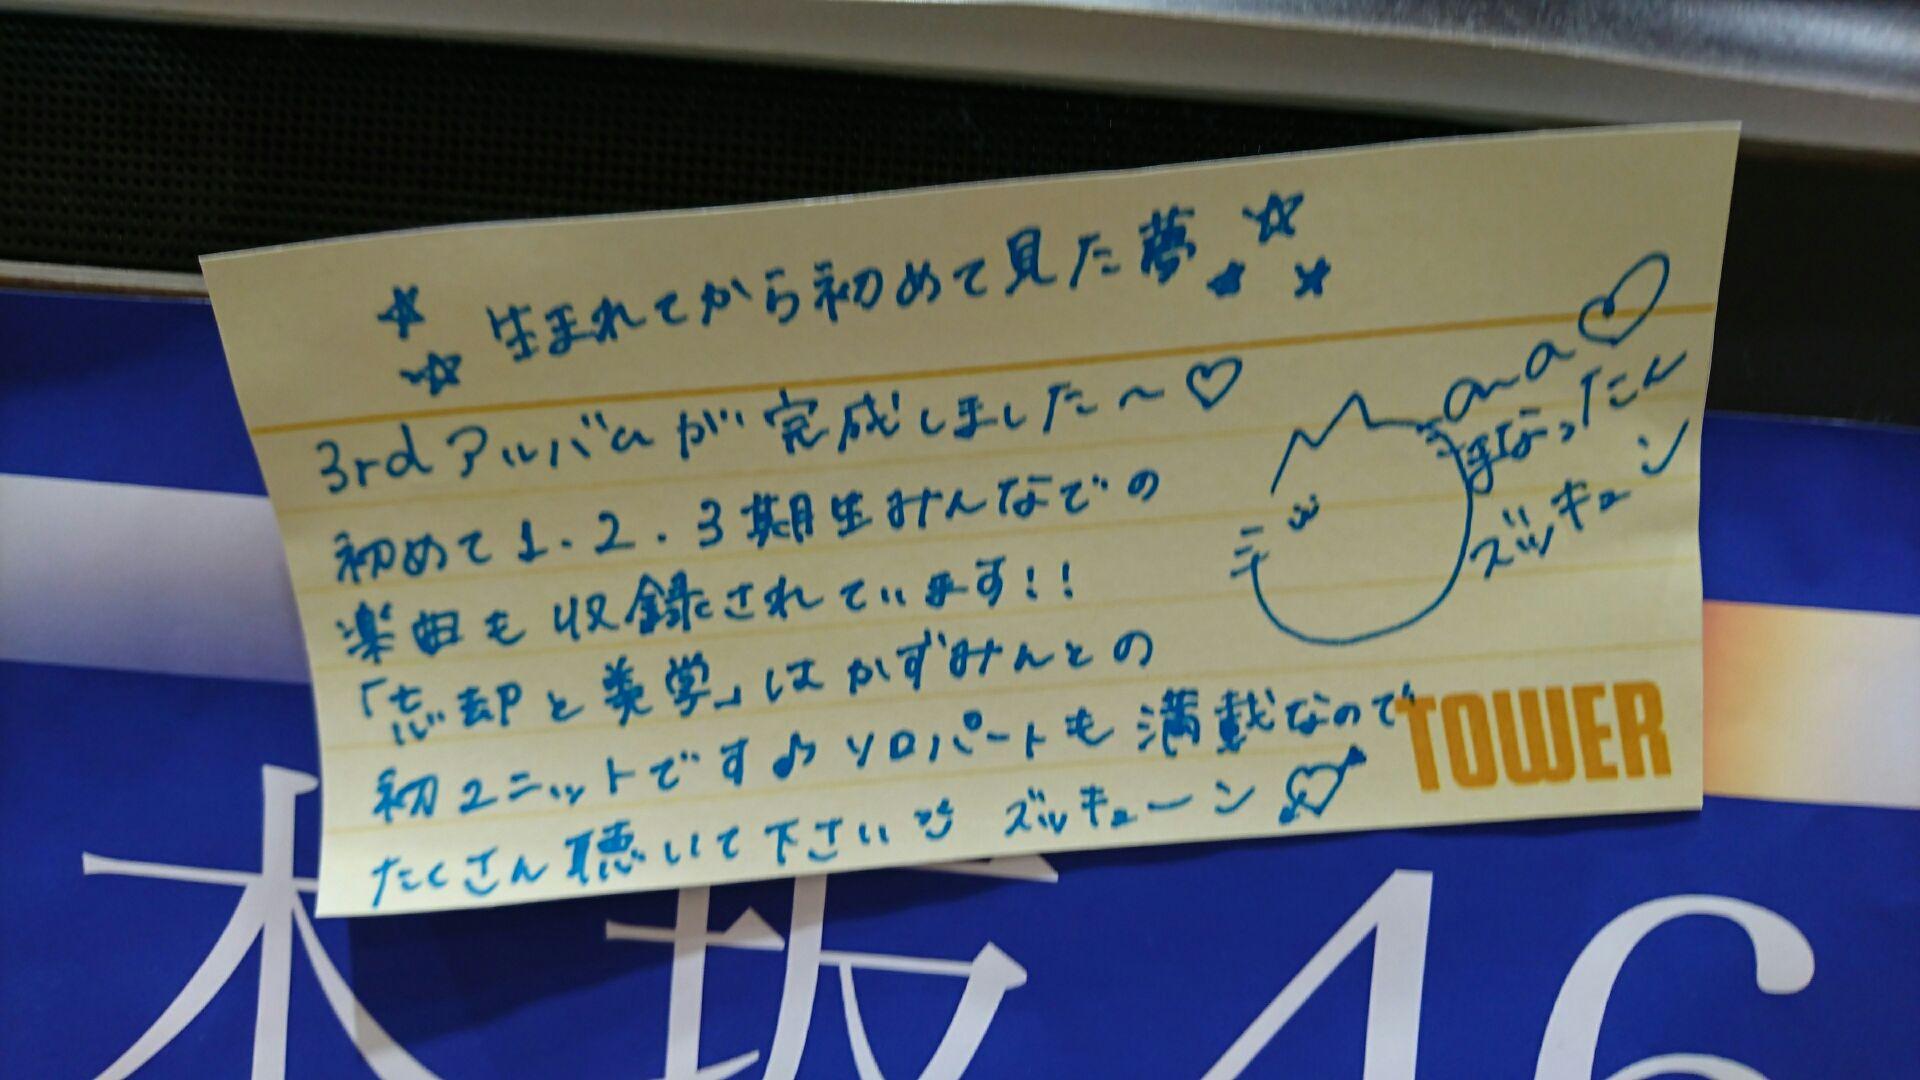 生まれてから初めて見た夢
3rdアルバムが完成しました〜♡
初めて1.2.3期生みんなでの
楽曲も収録されています!!
「忘却と美学」はかずみんとの
初ユニットです♪ソロパートも満載なので
たくさん聴いて下さい ズッキューン
ana♡
手なったん
ズッキューン
TOWER
木坂46